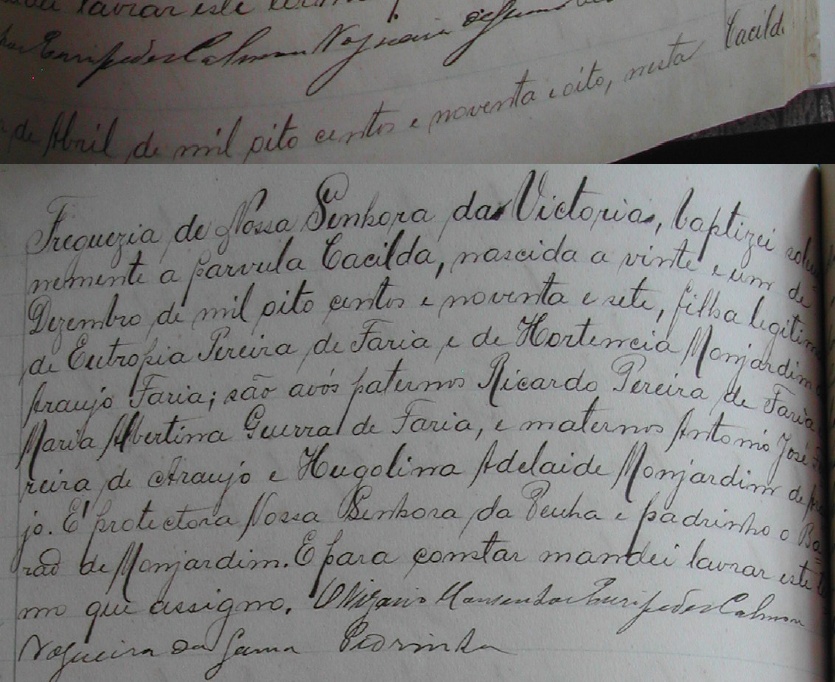 lavrar este
Euripedes Calmon Nogueira da Gama
de Abril de mil oito centos e noventa e oito, nesta Cacilda
Freguezia de Nossa Senhora da Victoria, baptizei solem
nemente a parvula Cacilda, nascida a vinte e um de
Dezembro de mil oito centos e noventa e sete, filha legitima
de Eutropia Pereira de Faria e de Hortencia Monjardim
Araujo Faria; são avós paternos Ricardo Pereira de Faria
Maria Albertina Guerra de Faria, e maternos Antonio José
reira de Araujo e Hugolina Adelaide Monjardim de
jo. É protectora Nossa Senhora da Penha e padrinho o Ba
rão de Monjardim. E para constar mandei lavrar este
mo que assigno. O Vigario Monsenhor Euripedes Calmon
Nogueira da Gama Pedrinha